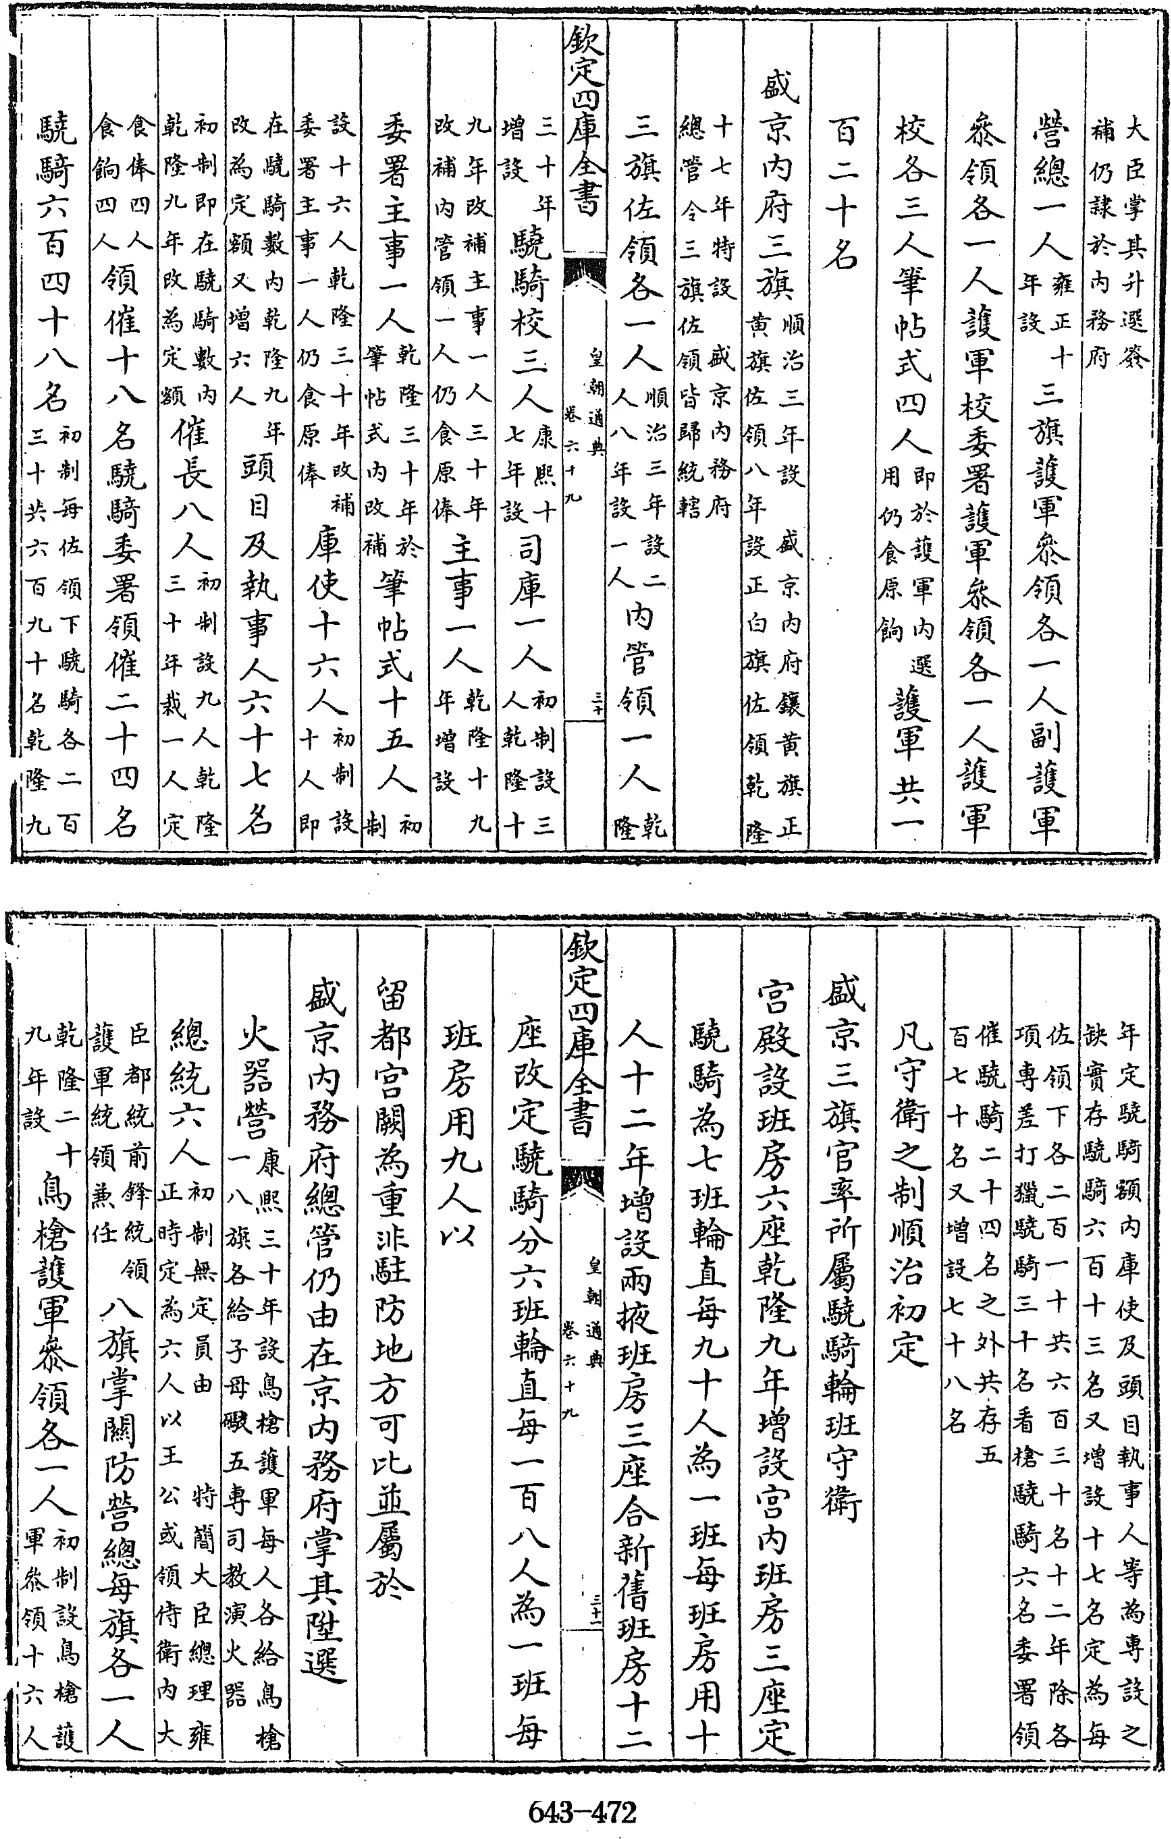 大臣掌其升選簽
補仍隷於内務府
營總一人雍正十年設三旗護軍叅領各一人副護軍
叅領各一人護軍校委署護軍叅領各一人護軍
校各三人筆帖式四人即於護軍内選用仍食原餉護軍共一
百二十名
盛京内府三旗順治三年設 盛京内府鑲黄旗正黄旗佐領八年設正白旗佐領乾隆
十七年特設 盛京内務府
總管令三旗佐領皆歸統轄
三旗佐領各一人順治三年設二人八年設一人内管領一人乾隆
欽定四庫全書 皇朝通典 卷六十九 三十
三十年增設驍騎校三人康熙十七年設司庫一人初制設三人乾隆十
九年改補主事一人三十年改補内管領一人仍食原俸主事一人乾隆十九年增設
委署主事一人乾隆三十年於筆帖式内改補筆帖式十五人初制
設十六人乾隆三十年改補委署主事一人仍食原俸庫使十六人初制設十人即
在驍騎數内乾隆九年改為定額又增六人頭目及執事人六十七名
初制即在驍騎數内乾隆九年改為定額催長八人初制設九人乾隆三十年裁一人定
食俸四人食餉四人領催十八名驍騎委署領催二十四名
驍騎六百四十八名初制每佐領下驍騎各二百三十共六百九十名乾隆九
年定驍騎額内庫使及頭目執事人等為專設之
缺實存驍騎六百十三名又增設十七名定為每
佐領下各二百一十共六百三十名十二年除各
項專差打獵驍騎三十名看槍驍騎六名委署領
催驍騎二十四名之外共存五
百七十名又增設七十八名
凡守衛之制順治初定
盛京三旗官率所屬驍騎輪班守衛
宮殿設班房六座乾隆九年增設宮内班房三座定
驍騎為七班輪直每九十人為一班每班房用十
人十二年增設兩掖班房三座合新舊班房十二
欽定四庫全書 皇朝通典 卷六十九 三十一
座改定驍騎分六班輪直每一百八人為一班每
班房用九人以
留都宮闕為重非駐防地方可比並屬於
盛京内務府總管仍由在京内務府掌其陞選
火器營康熙三十年設鳥槍護軍每人各給鳥槍一八旗各給子母礮五專司教演火器
總統六人初制無定員由 特簡大臣總理雍正時定為六人以王公或領侍衛内大
臣都統前鋒統領護軍統領兼任八旗掌關防營總每旗各一人
乾隆二十九年設鳥槍護軍叅領各一人初制設鳥槍護軍叅領十六人
643-472